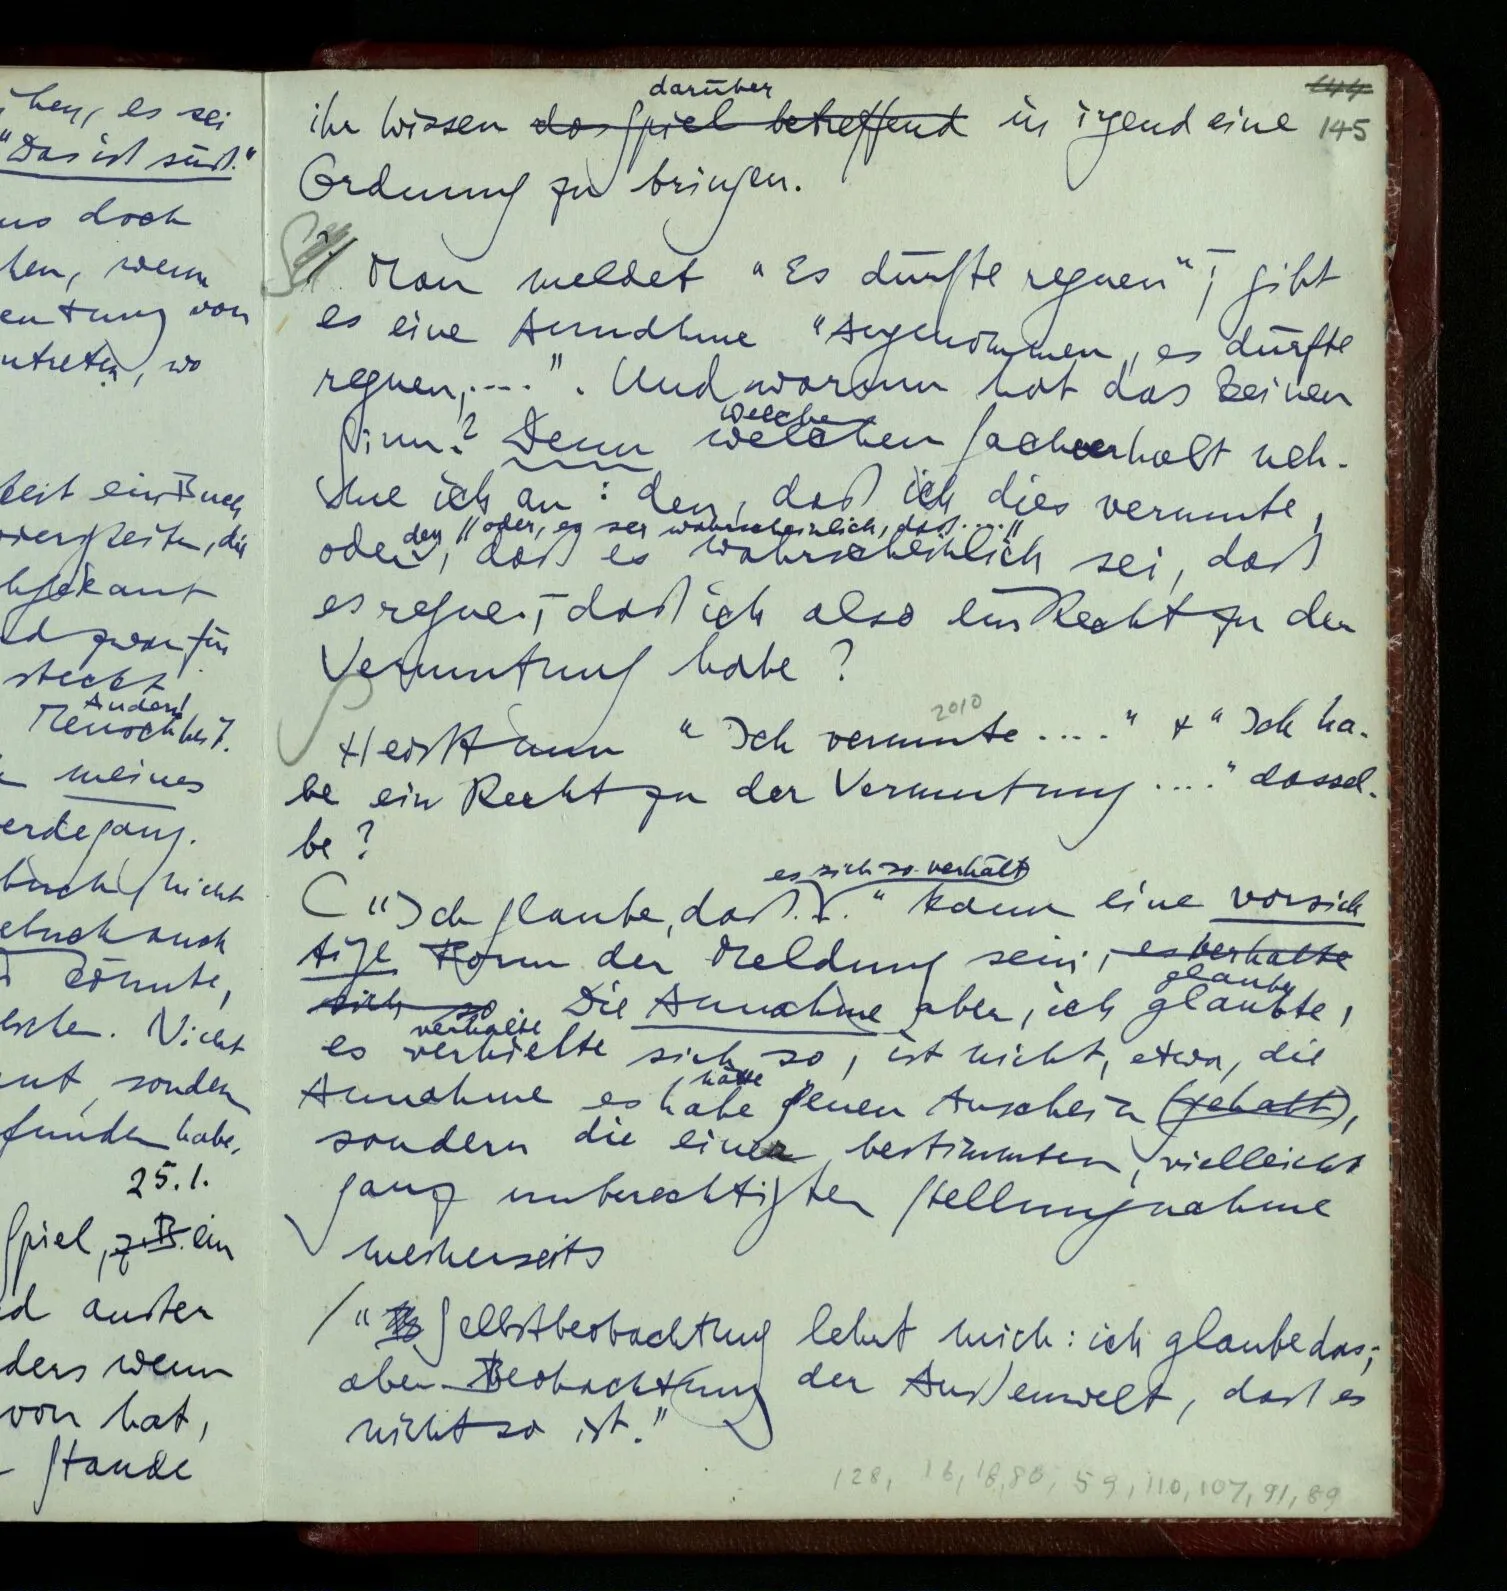 ihen, es sei
"Das ist süß."
uns doch
hen, wenn
eutung von
ntreten, wo
ein Buch
die
steckt
Ander
Mensch
meines
erdegang.
nicht
ebuch auch
könnte,
Nicht
nut, sondern
funden habe.
25.1.
Spiel, z.B. ein
d außer
ders wenn
von hat,
Stande
144
145
darüber
ihr Wissen das Spiel betreffend in irgend eine
Ordnung zu bringen.
Man meldet "Es dürfte regnen"; gibt
es eine Annahme "Angenommen, es dürfte
regnen,....". Und warum hat das keinen
welche
Sinn? Denn welchen Sachverhalt neh-
me ich an: den, daß ich dies vermute,
den "oder, es sei wahrscheinlich, daß...."
oder, daß es wahrscheinlich sei, daß
es regne; daß ich also ein Recht zu der
Vermutung habe?
2010
Heißt nun "Ich vermute...." + "Ich ha-
be ein Recht zu der Vermutung...." dassel-
be?
es sich so verhält
"Ich glaube, daß..." kann eine vorsich
tige Form der Meldung sein, es verhalte
glaube
sich so. Die Annahme aber, ich glaubte,
verhalte
es verhielte sich so, ist nicht, etwa, die
hätte
Annahme es habe jenen Anschein (gehabt),
sondern die einer bestimmten, vielleicht
ganz unberechtigten Stellungnahme
meinerseits
/ "Selbstbeobachtung lehrt mich: ich glaube das;
aber Beobachtung der Außenwelt, daß es
nicht so ist."
128, 16, 18, 80, 59, 110, 107, 91, 89